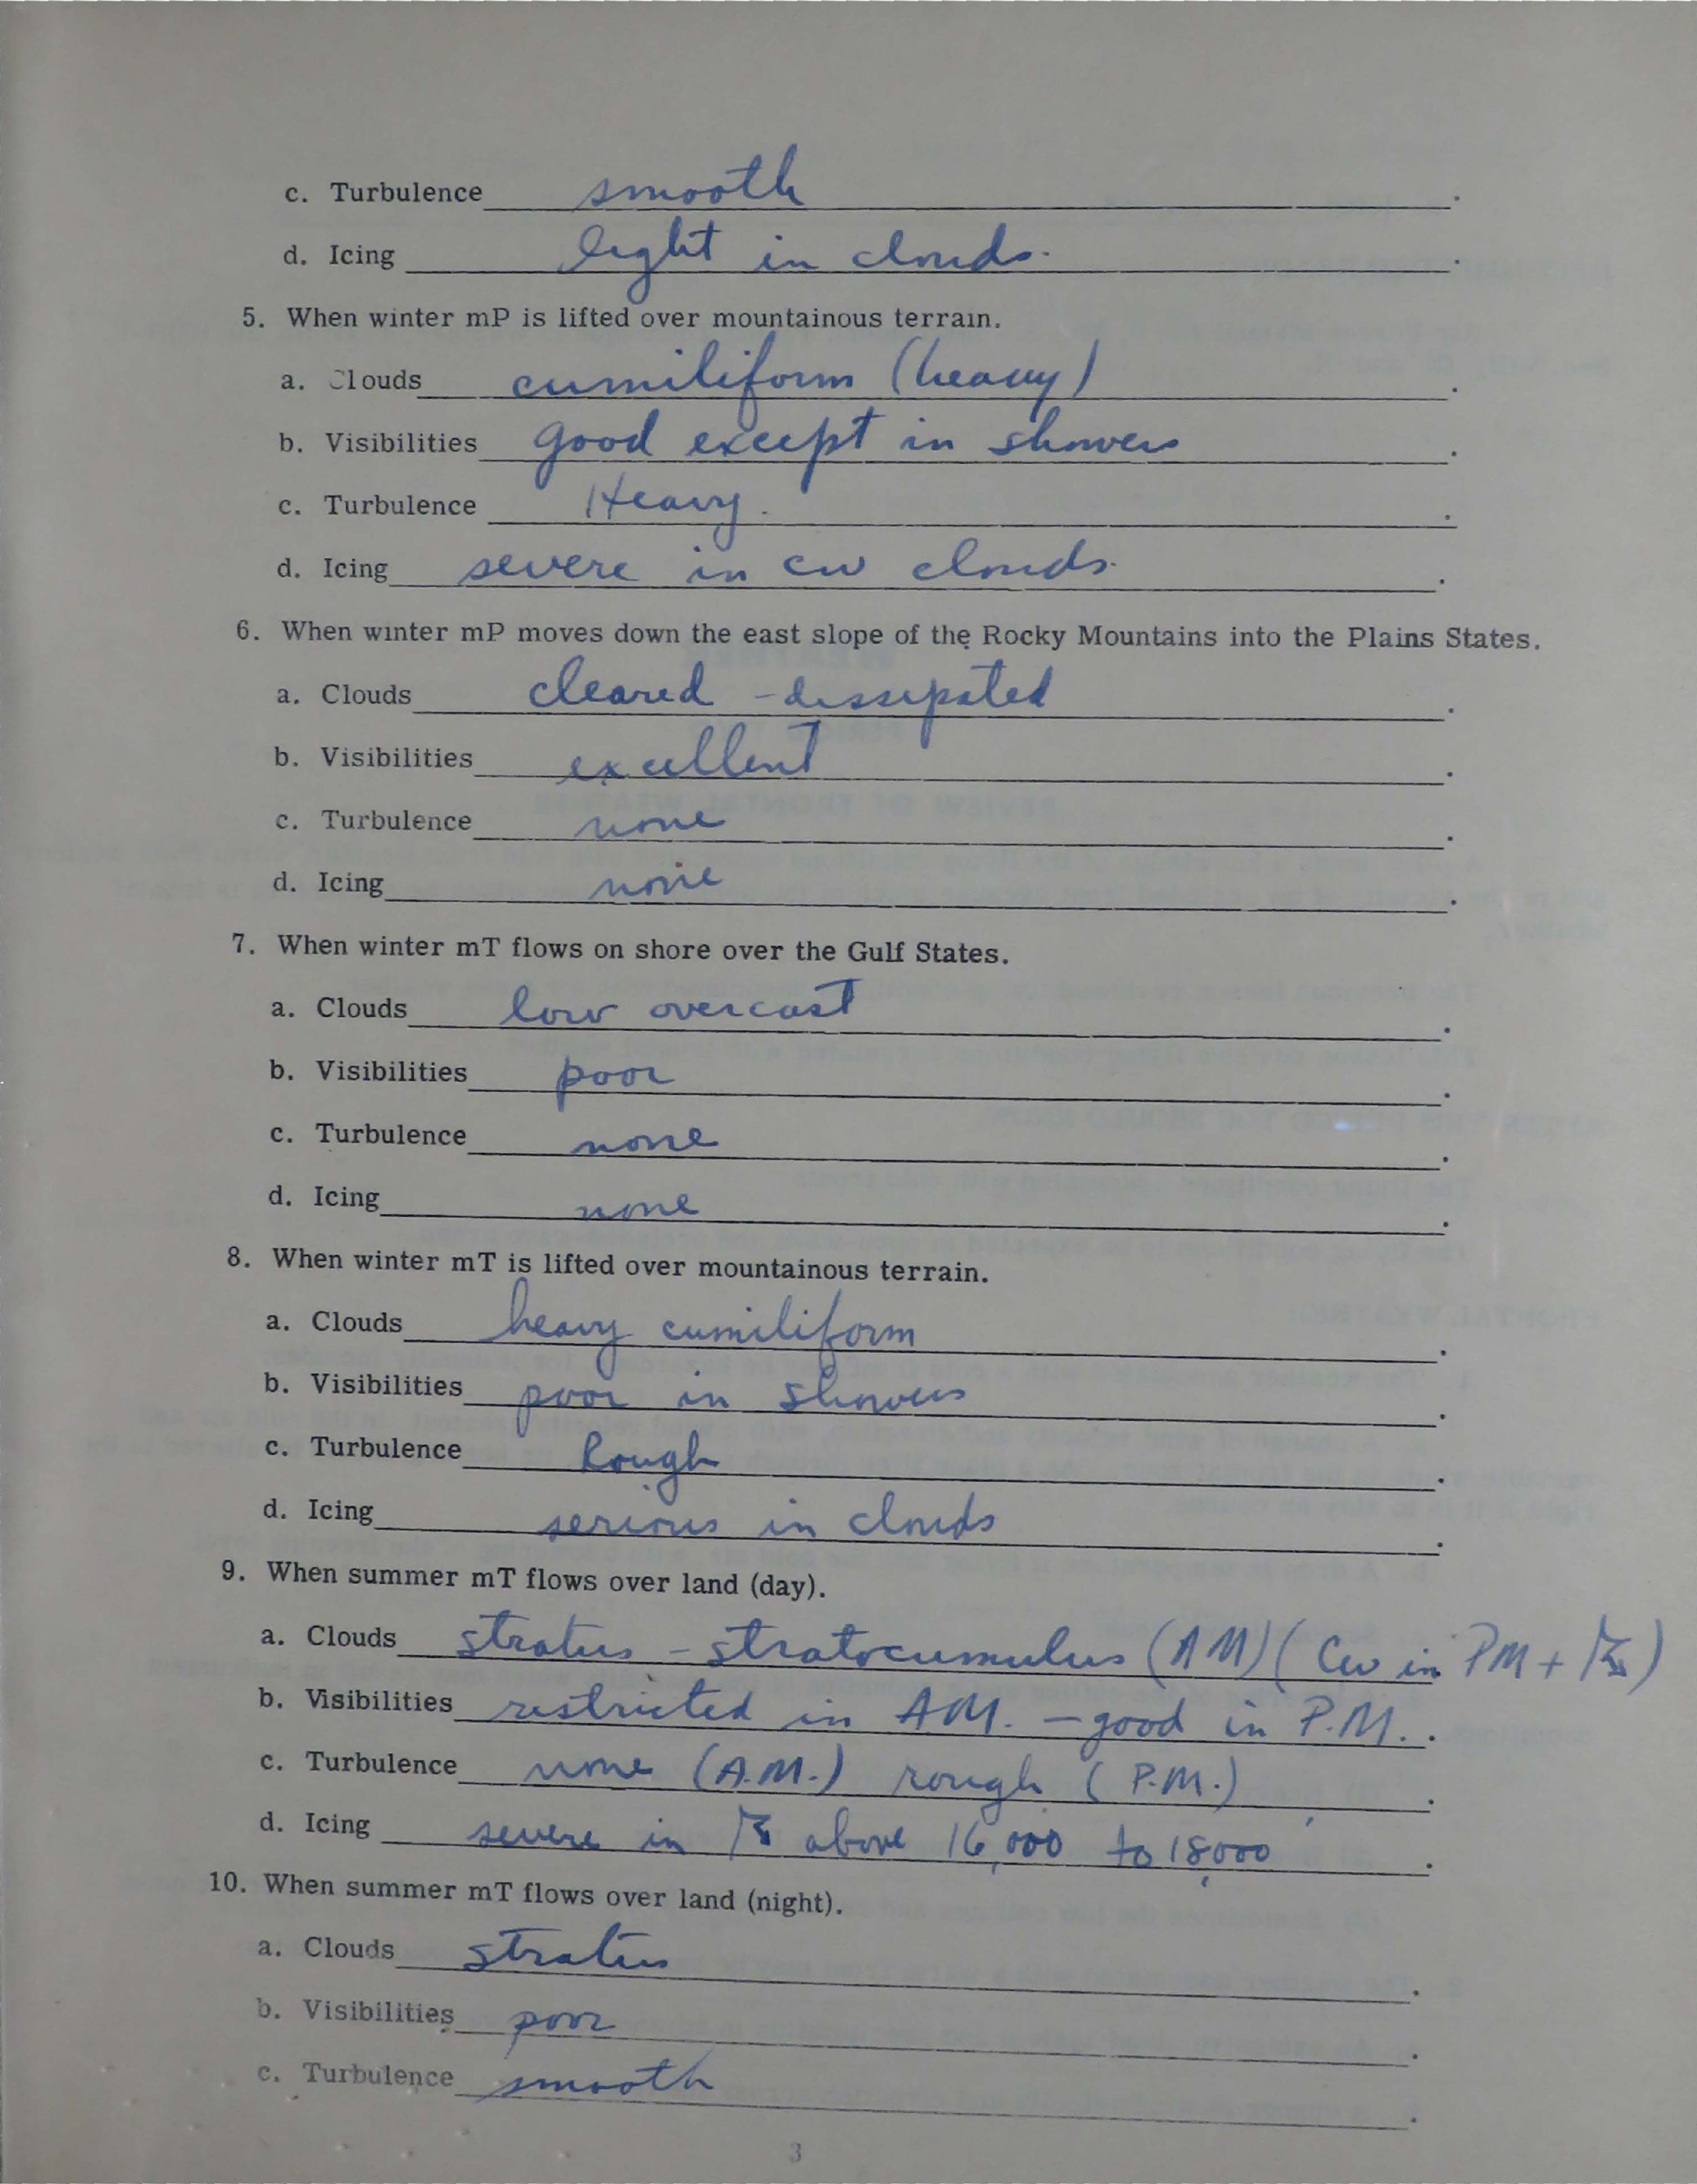 c. Turbulence smooth.
d. Icing light in clouds.
5. When winter mP is lifted over mountainous terrain.
a. Clouds cumiliform (heavy).
b. Visibilities good except in showers.
c. Turbulence Heavy.
d. Icing severe in cu clouds.
6. When winter mP moves down the east slope of the Rocky Mountains into the Plains States.
a. Clouds cleared - dissipated.
b. Visibilities excellent.
c. Turbulence none.
d. Icing none.
7. When winter mT flows on shore over the Gulf States.
a. Clouds low overcast.
b. Visibilities poor.
c. Turbulence none.
d. Icing none.
8. When winter mT is lifted over mountainous terrain.
a. Clouds heavy cumiliform.
b. Visibilities poor in showers.
c. Turbulence Rough.
d. Icing serious in clouds.
9. When summer mT flows over land (day).
a. Clouds stratus - stratocumulus (AM) (Cu in PM + ☈)
b. Visibilities restricted in AM. - good in P.M..
c. Turbulence none (A.M.) rough (P.M.).
d. Icing severe in ☈ above 16,000 to 18,000.
10. When summer mT flows over land (night).
a. Clouds stratus.
b. Visibilities poor.
c. Turbulence smooth.
3